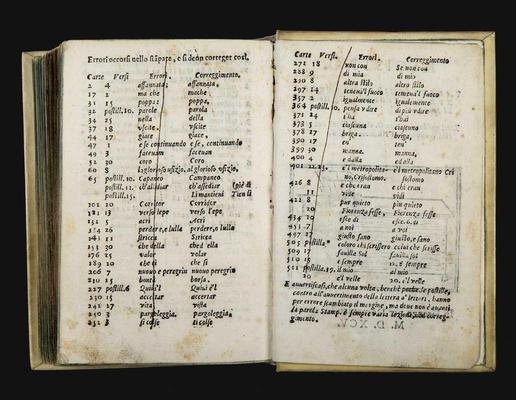 Errori occorsi nello stāpare, e si deon correger così.
Carte Versi Errori. Correggimento.
2 4 affannata; affannata.
17 2 ma che mache
31 15 poppa: poppa,
32 postill. 10. parole parola
34 25 nella della
37 18 vscite. vscite,
44 17 giace giace.
47 1 e se continuando e se, continuando
49 3 faceuam faceuan
52 10 coro Coro
60 8 Iglorioso vfizio, al glorioso vfizio,
65 postill. 10. Capaneo Campaneo
postill. 11. ch'assidiar ch'assediar
postill. 15. Li mantieni
101 10 Corritor Corrier
121 13 verso lepe verso l'epe
132 5 acri Acri
134 26 perder e, o lulla perdere, o lulla
143 11 stricca Stricca
153 30 che della ched ella
176 25 valor valor
189 10 che di che si
206 7 nuouo e peregrin nuouo peregrin
210 15 bontà borsa.
227 postill. 6 Quini'l Quiui è'l
230 15 accertar accettar
241 27 vita vista
250 3 pargoleggia. pargoleggia,
252 3 si colse ti colse
Carte Versi. Errori. Correggimento
272 18 non con Se non con
288 9 di mia di mio
290 8 altra stilo altro stilo
297 14 teneua'l fuoco temeua'l fuoco
357 2 igualmente Igualmente
364 postill. 10. pensa idire di più vdire
371 24 t'ha t'hai
373 5 ciascuna ciascuno
378 17 briga, briga.
390 17 en' ten'
399 30 manna. manna,
400 4 e dalla ed alla
401 22.23. e'l metropolitano e'l metropolitano Cri
no, Crisostomo. sostomo.
426 8 e chi eran e chi eran
11 vide vidi
422 8 pur quieto piu quieto
29 Fiorenza fesse, Fiorenza fesse
434 20 esce di esce. e di
453 7 a noi a voi
497 27 giusto sano giusto, e sano
505 postilla. coloro chi scrissero colui che scrisse
509 15 fauilla Sol fauilla sol
510 2 e sempre
511 postilla. 19. il mio al mio
20 e'l velle 20. e'l velle
E auuertiscasi, che alcuna volta, benchè poche, le postille,
contro all'auuertimento della lettera a' lettori, hanno
per errore scambiato il margine, ma deue non è auanti
la parola Stamp. è sempre varia lezione, non correg-
gimento.
M. D. XCV.